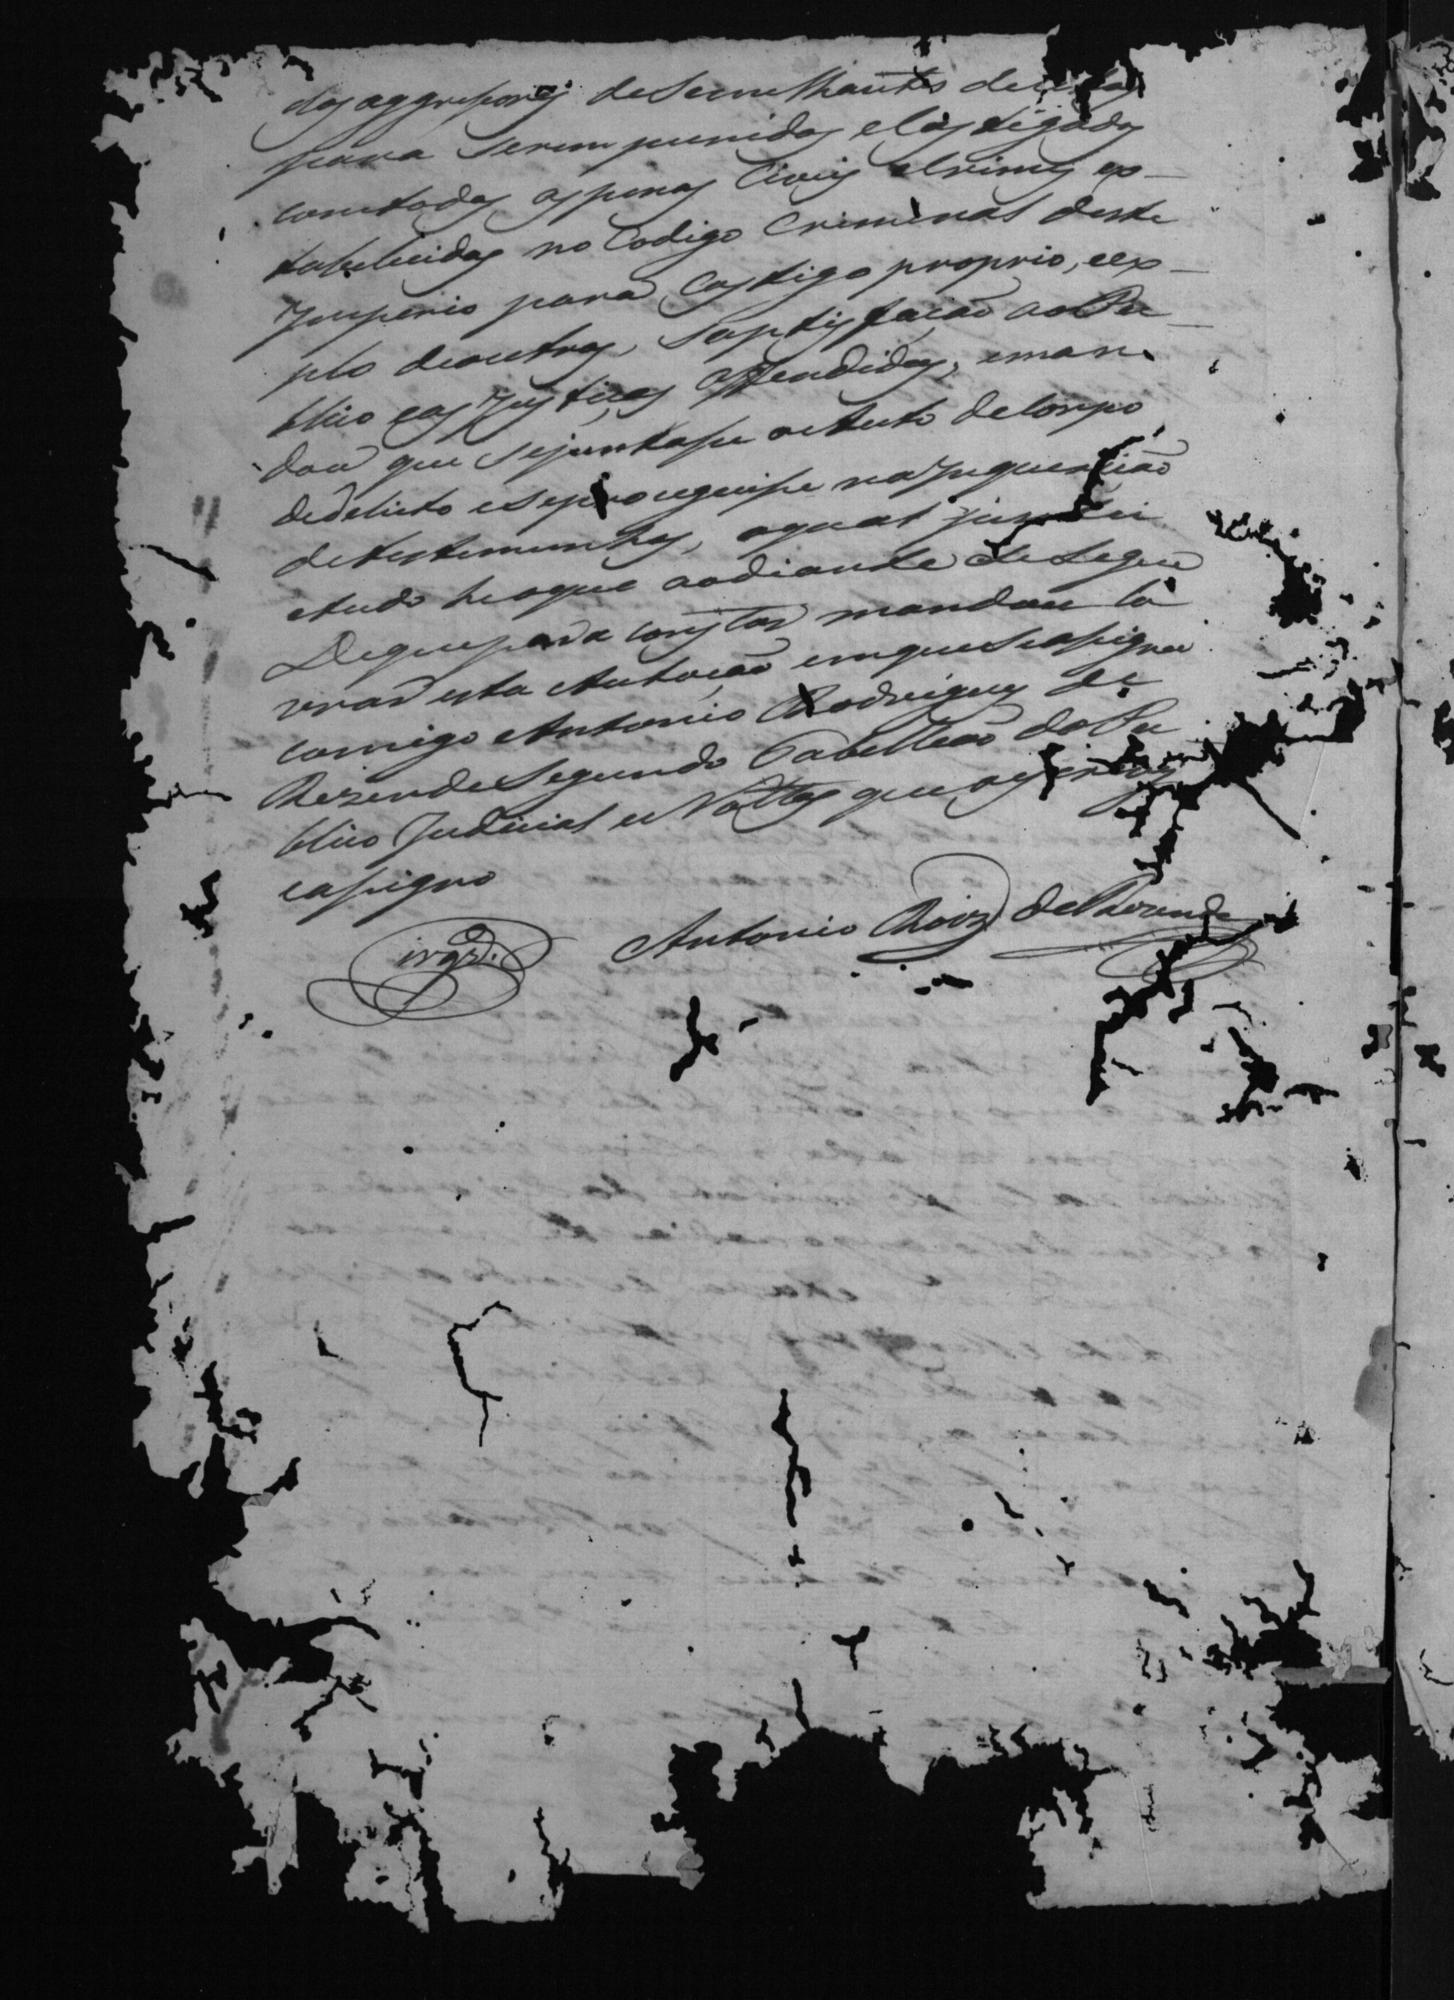 dos aggressores de semelhantes delictos
para serem punidos e Castigados
com todas as penas Civeis e Crimes es-
tabelicidas no Codigo Criminal deste
Imperio para Castigo proprio, e ex-
plo de outros, saptisfação ao Pu-
blico e as Justiças offendidas, e man-
dou que se juntasse o Auto de Corpo
de delicto e se proceguisse na Inquerição
de testemunhas, o qual juntei
e tudo he o que ao diante se segue
De que para constar mandou la
vrar esta Autoação em que se assignou
comigo Antonio Rodrigues de
Rezende Segundo Tabelleão do Pu
blico Judicial e Nottas que o escrevy
e assigno
Antonio Roiz de Rezende